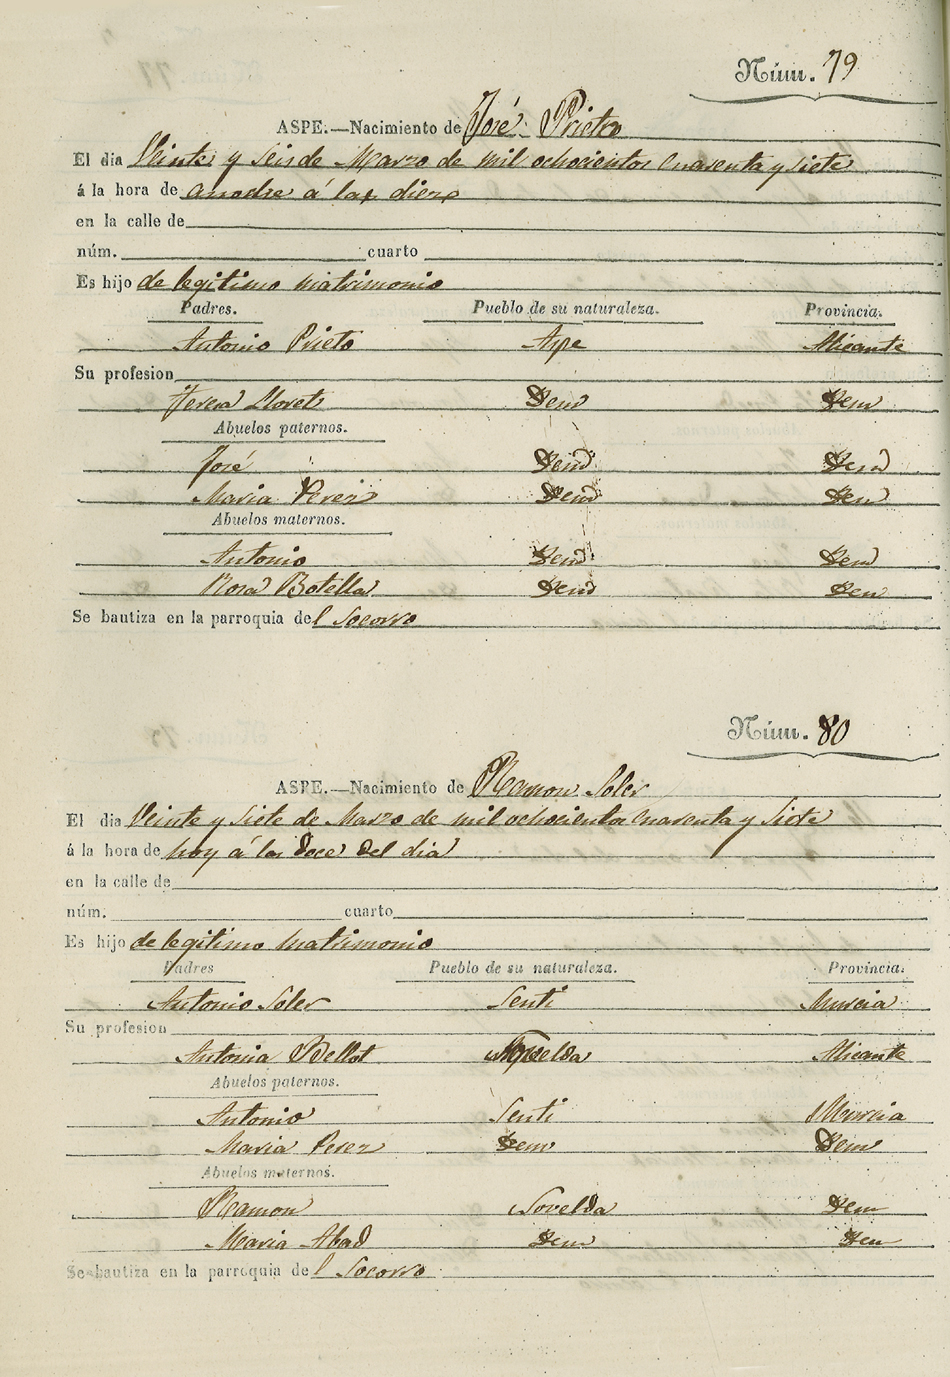 Núm. 79
ASPE.—Nacimiento de José Prieto
El dia Veinte y Seis de Marzo de mil ochocientos Cuarenta y Siete
á la hora de anoche á las diez
en la calle de
núm. cuarto
Es hijo de legitimo matrimonio
Padres. Pueblo de su naturaleza. Provincia.
Antonio Prieto Aspe Alicante
Su profesion
Teresa Lloret Ydem Ydem
Abuelos paternos.
José Ydem Ydem
Maria Perez Ydem Ydem
Abuelos maternos.
Antonio Ydem Ydem
Rosa Botella Ydem Ydem
Se bautiza en la parroquia del Socorro
Núm. 80
ASPE.—Nacimiento de Ramon Soler
El dia Veinte y Siete de Marzo de mil ochocientos Cuarenta y Siete
á la hora de hoy á las doce del dia
en la calle de
núm. cuarto
Es hijo de legitimo matrimonio
Padres Pueblo de su naturaleza. Provincia.
Antonio Soler Senti Murcia
Su profesion
Antonia Bellot Alicante
Abuelos paternos.
Antonio Senti Murcia
Maria Perez Ydem Ydem
Abuelos maternos.
Ramon Novelda Ydem
Maria Abad Ydem Ydem
Se bautiza en la parroquia del Socorro